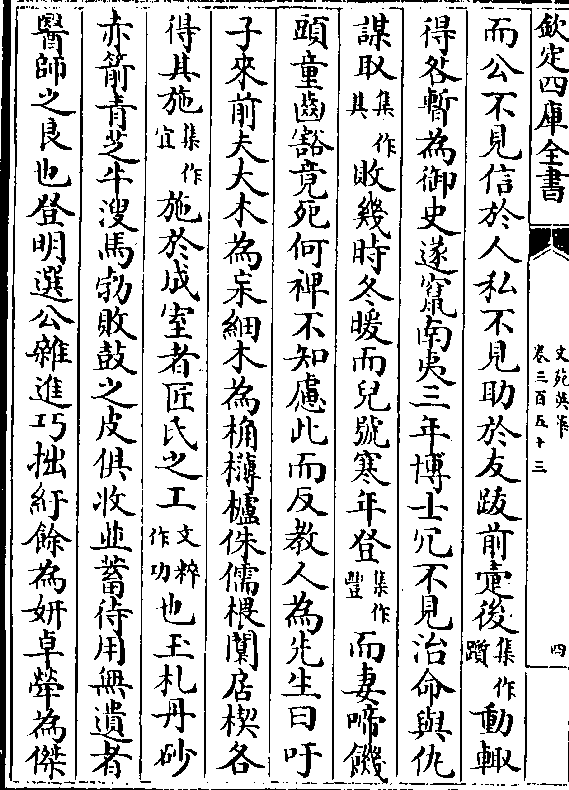 欽定四庫全書
文苑英華
卷三百五十三
四
而公不見信於人私不見助於友跋前疐後集作躓動輙
得咎暫為御史遂竄南夷三年博士冗不見治命與仇
謀取集作其敗幾時冬暖而兒號寒年登集作豐而妻啼饑
頭童齒豁竟死何禆不知慮此而反教人為先生曰吁
子來前夫大木為杗細木為桷欂櫨侏儒椳闑扂楔各
得其施集作宜施於成室者匠氏之工文粹作功也玉札丹砂
赤箭青芝牛溲馬勃敗鼓之皮俱收並蓄待用無遺者
醫師之良也登明選公雜進巧拙紆餘為妍卓犖為傑